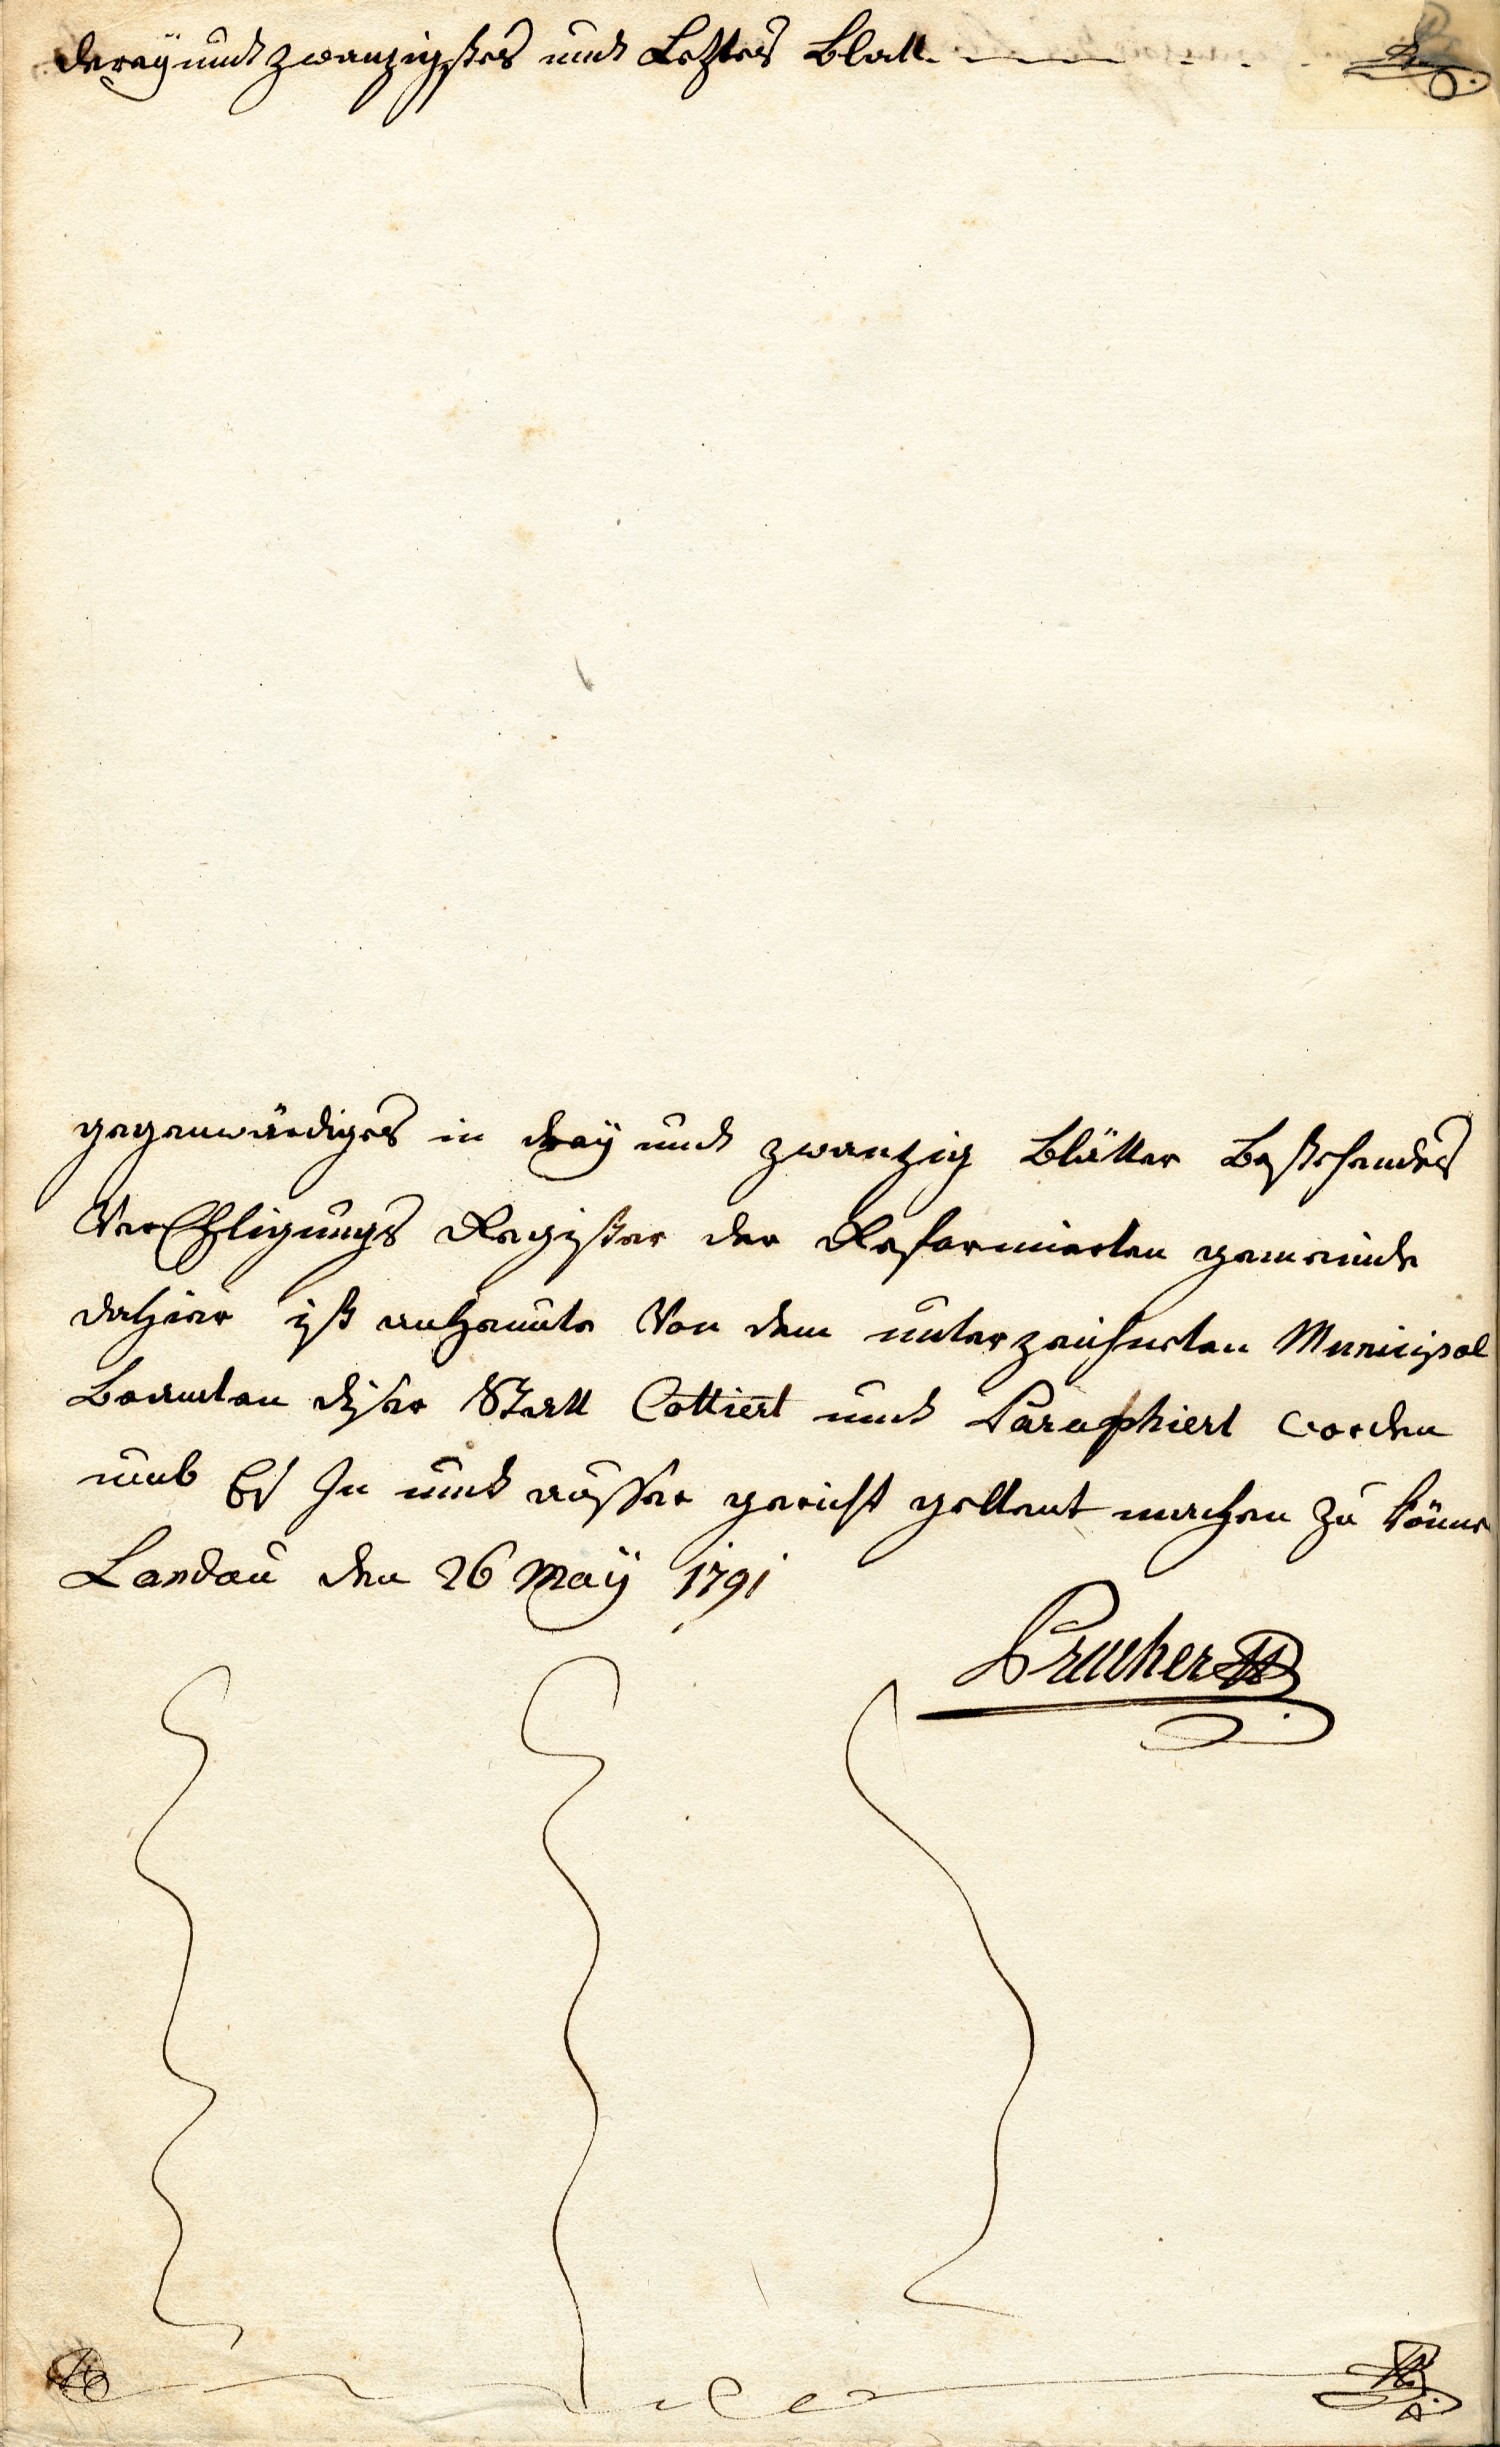 dreÿ und zwanzigstes und Letztes Blatt.
gegenwärdiges in dreÿ und zwanzig Blätter Bestehendes
VerEhligungs Register der Reformierten gemeinde
dahier ist anheute Von dem unterzeichneten Municipal
Beamten diser Statt Cottiert und Paraphiert worden
umb Es In und ausser gericht geltent machen zu könne
Landau den 26 Maÿ 1791
Brucker